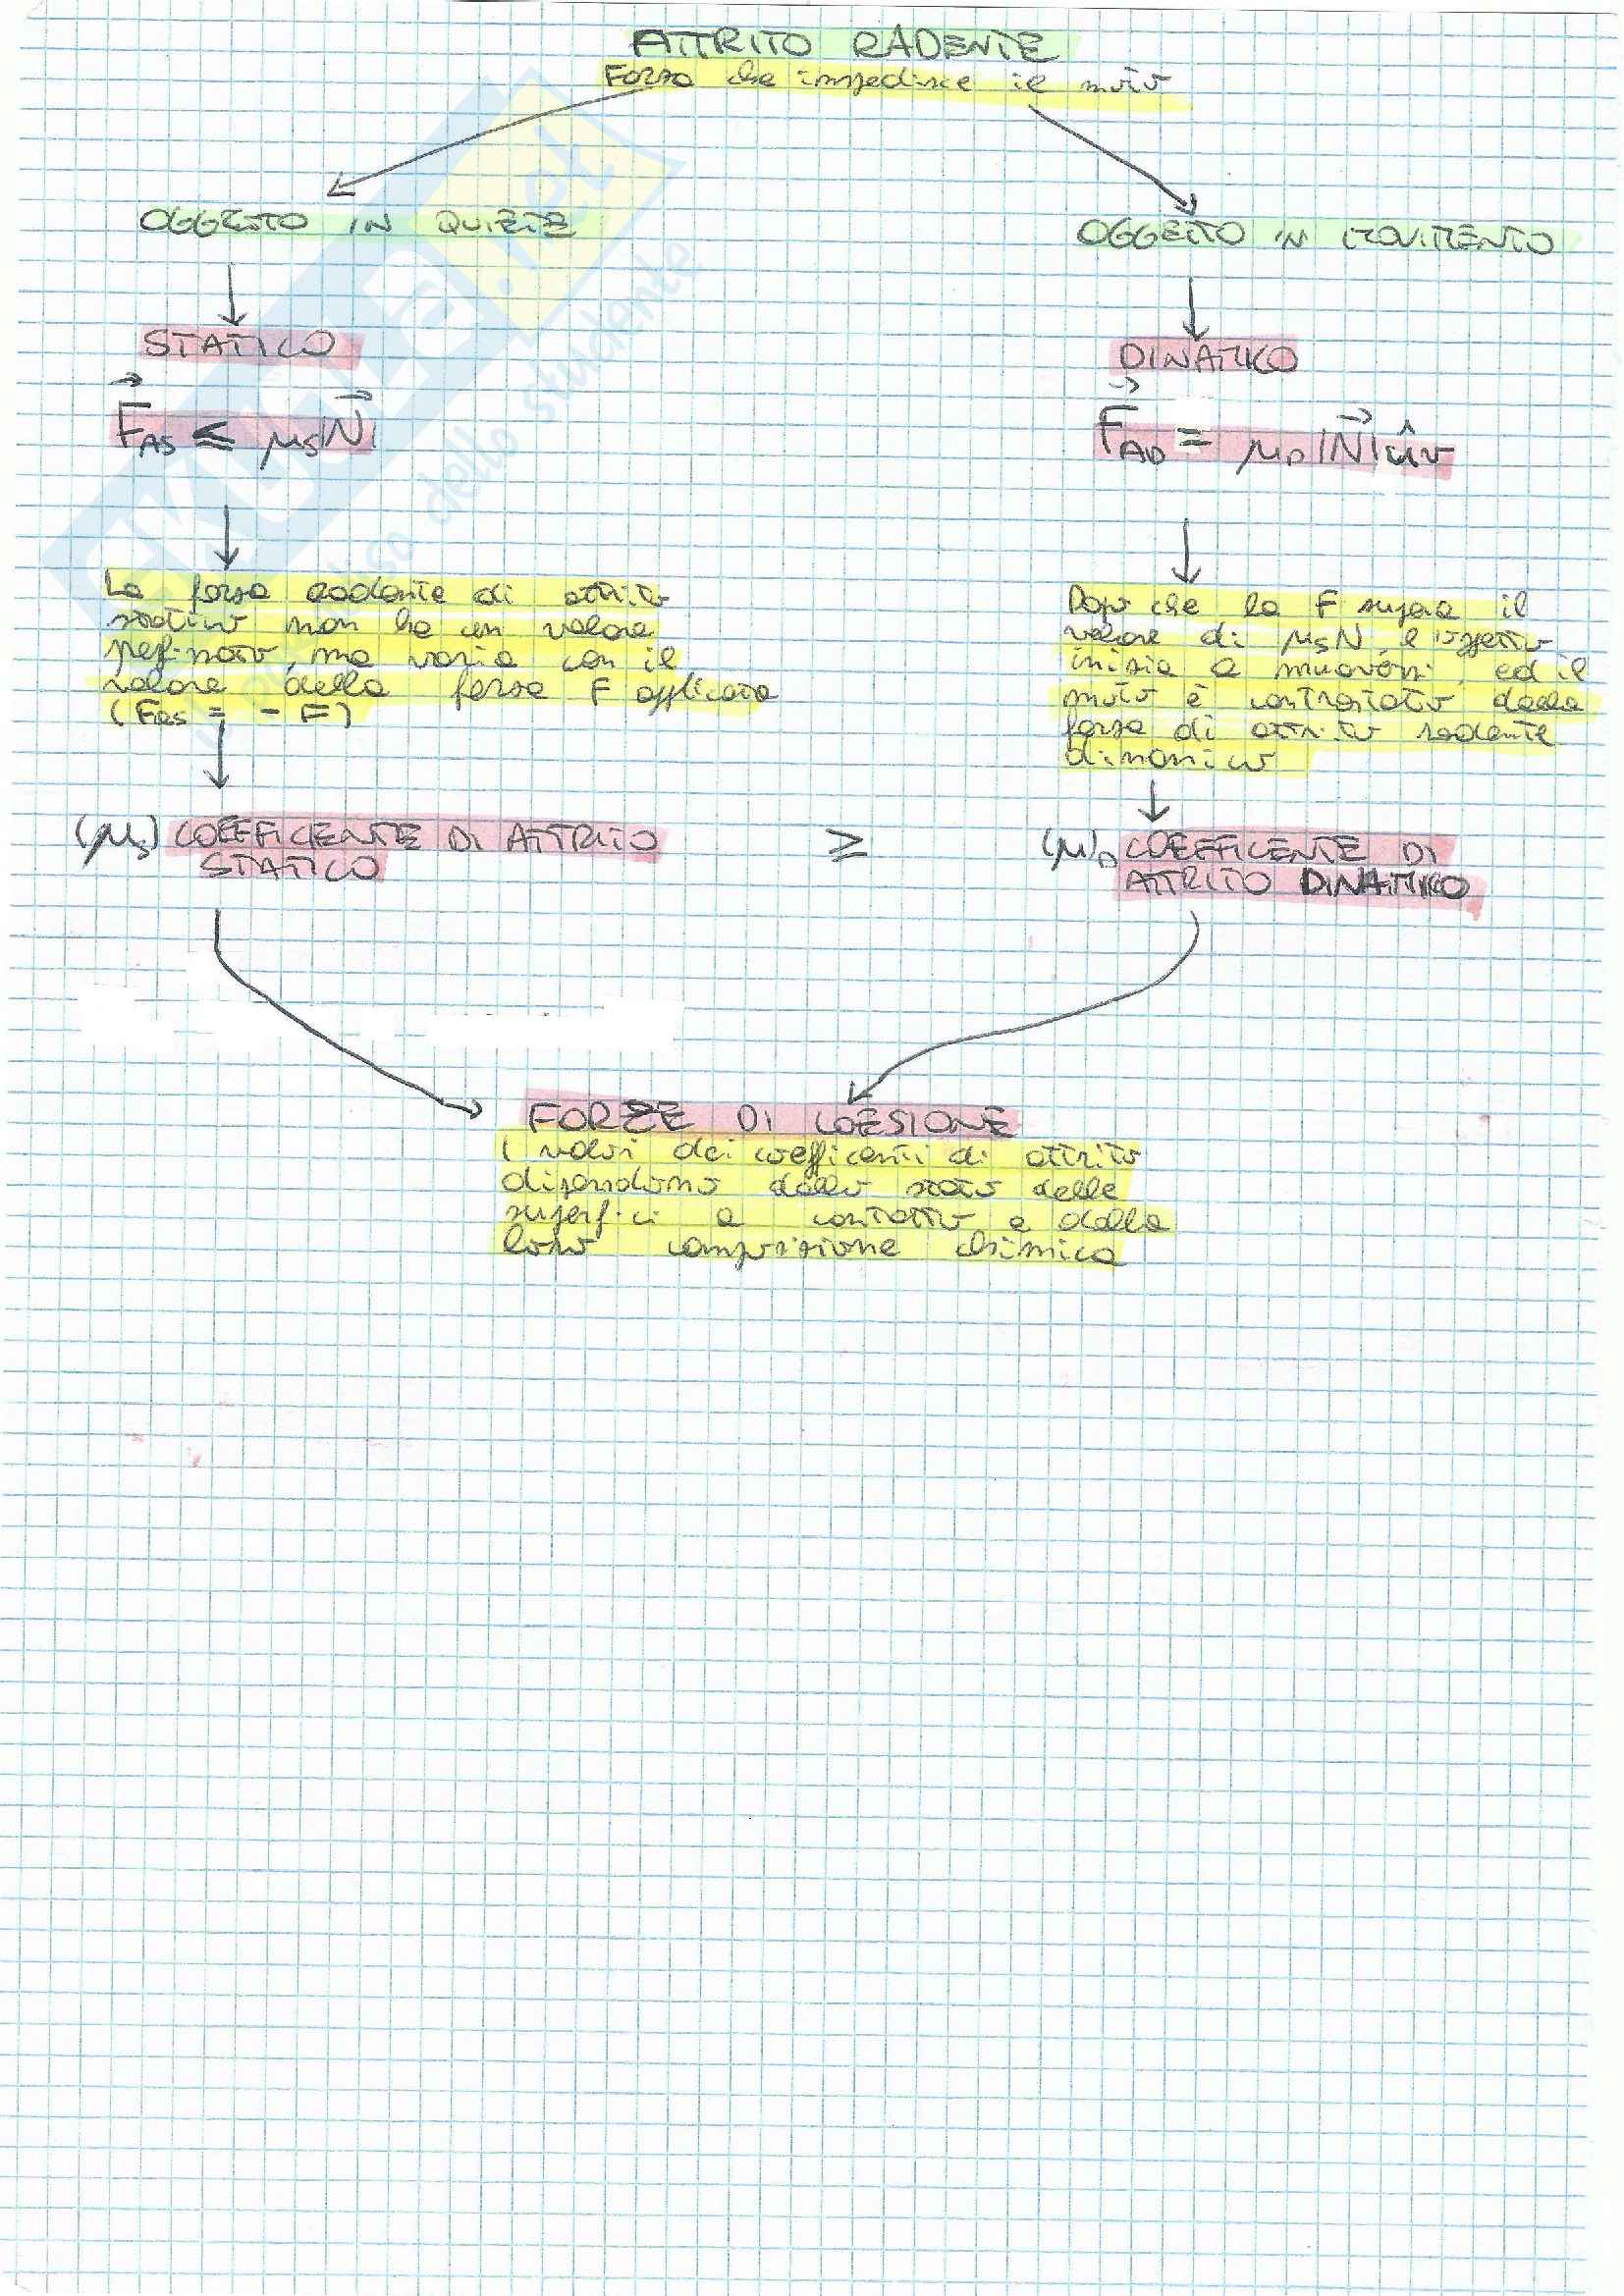 ATTRITO RADENTE
Forza che impedisce il moto
OGGETTO IN QUIETE
OGGETTO IN MOVIMENTO
STATICO
DINAMICO
F⃗AS ≤ μS|N⃗|
F⃗AD = μD|N⃗|ûv
La forza radente di attrito
statico non ha un valore
prefissato, ma varia con il
valore della forza F applicata
(FAS = - F)
Dopo che la F supera il
valore di μSN, l'oggetto
inizia a muoversi, ed il
moto è contrastato dalla
forza di attrito radente
dinamico
(μS) COEFFICIENTE DI ATTRITO
STATICO
≥
(μ)D COEFFICENTE DI
ATTRITO DINAMICO
FORZE DI COESIONE
I valori dei coefficenti di attrito
dipendono dallo stato delle
superfici a contatto e dalla
loro composizione chimica
SKUOLA.net
dello studente